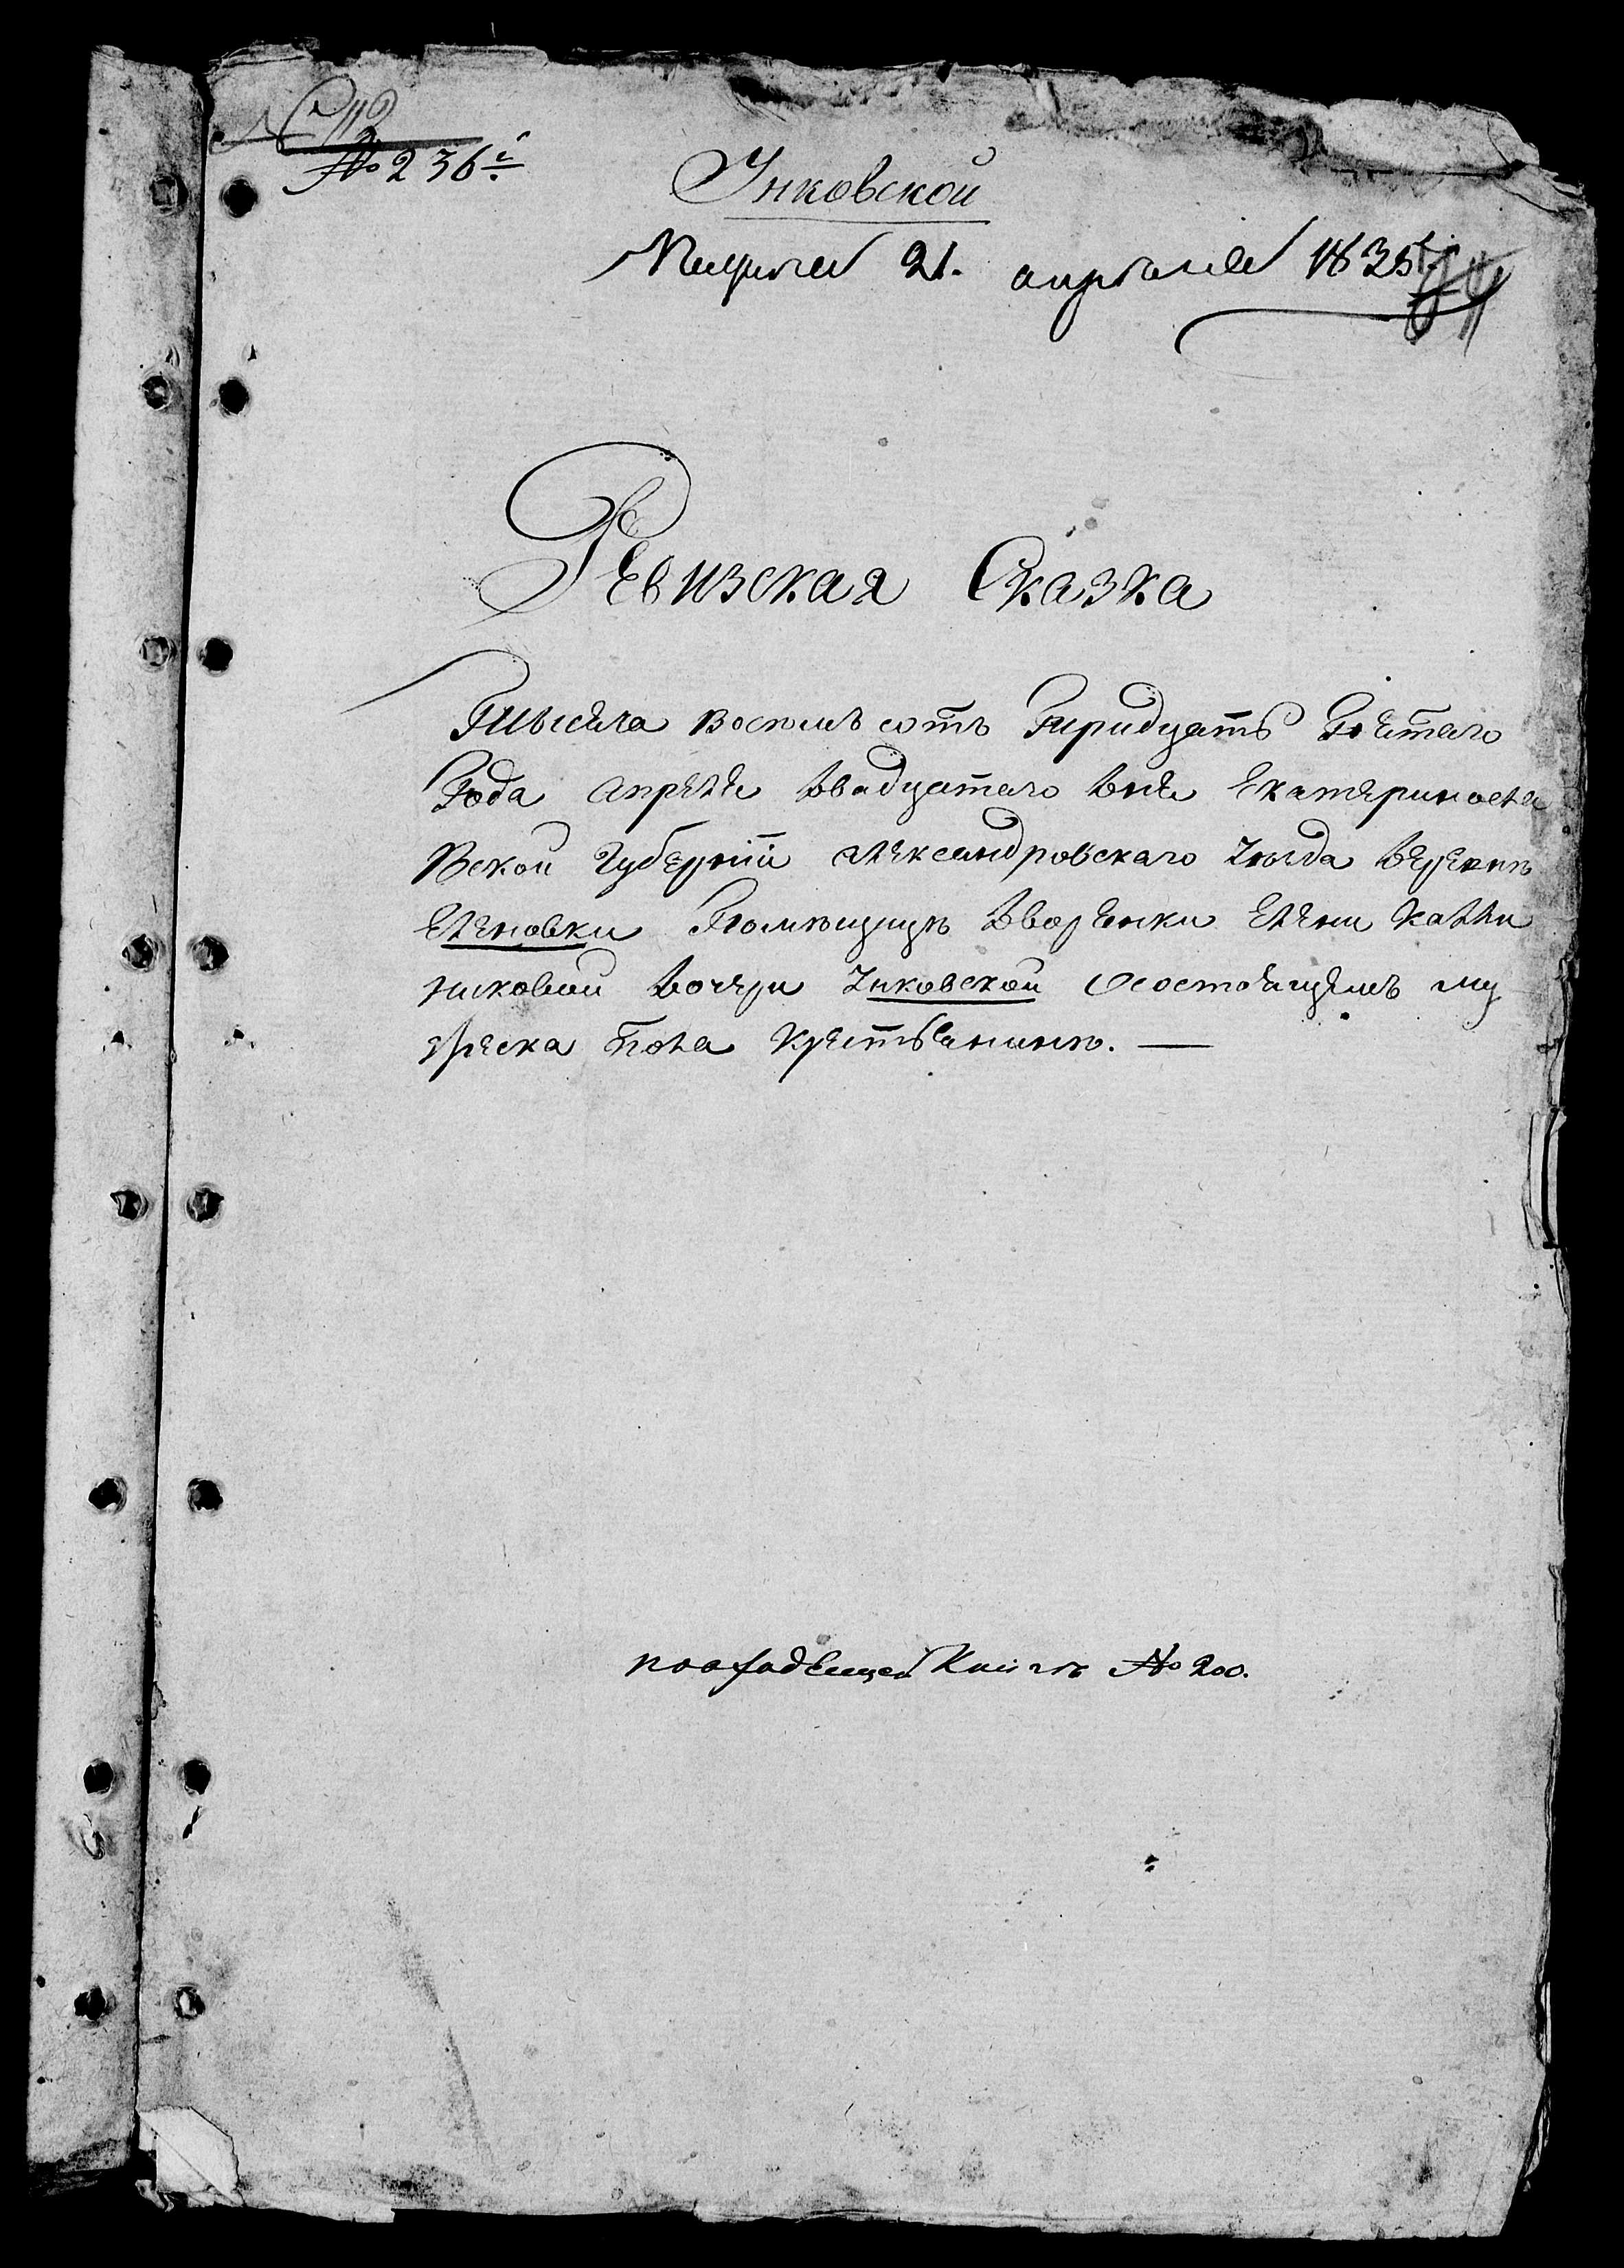 № 112
№ 236й
Унковской
Получена 21. апреля 1835
Ревизская Сказка
Тысяча восемь сотъ Тридцать Пятаго
Года апреля двадцатаго дня Екатериносла
Вской Губернїи александровскаго Уезда деревни
Еленовки Помещицы дворянки Елены Калли
никовой дочери Унковской о состоящемъ му
жеска пола крестьянине. —
по входящей Книге № 200.